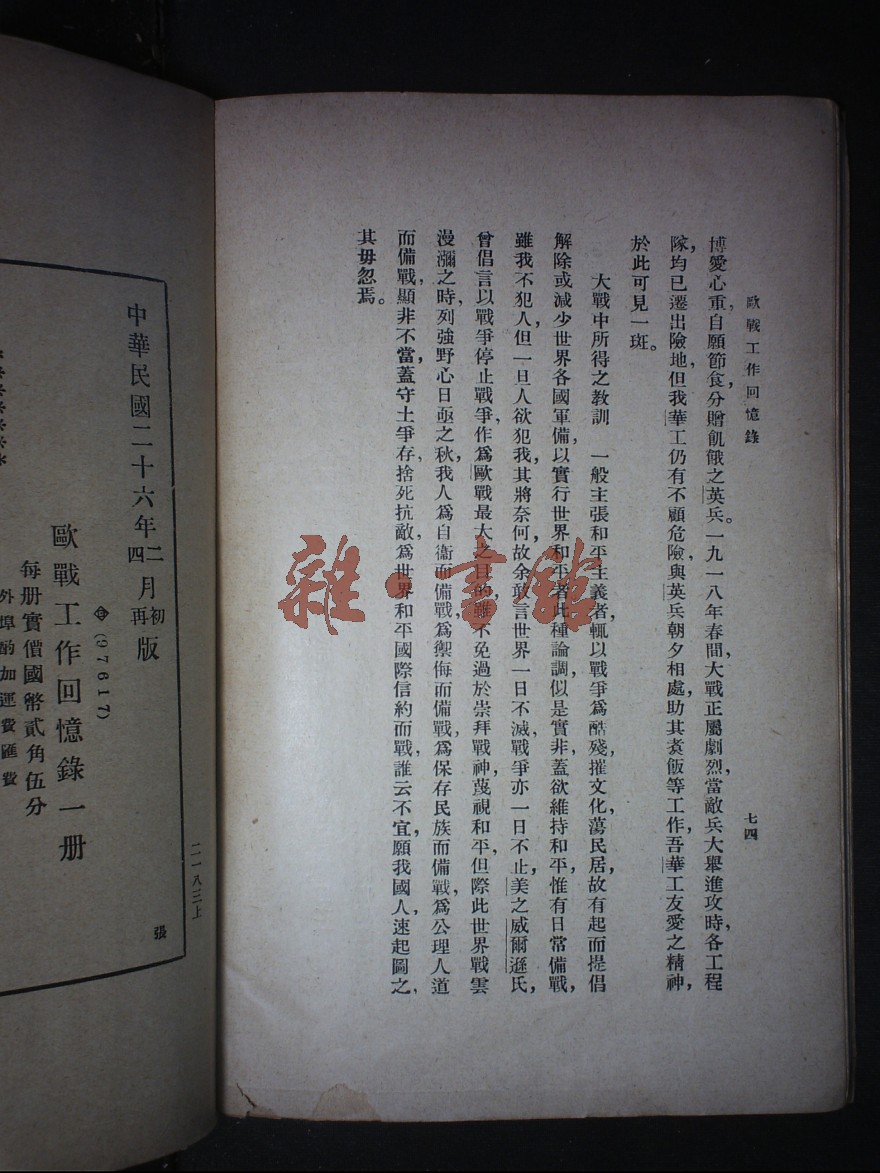 歐戰工作回憶錄
七四
博愛心重，自願節食，分贈飢餓之英兵。一九一八年春間，大戰正屬劇烈，當敵兵大舉進攻時，各工程
隊，均已遷出險地，但我華工仍有不顧危險，與英兵朝夕相處，助其煑飯等工作，吾華工友愛之精神，
於此可見一斑。
大戰中所得之教訓　一般主張和平主義者，輒以戰爭爲酷殘，摧文化，蕩民居，故有起而提倡
解除或減少世界各國軍備，以實行世界和平者，此種論調，似是實非，蓋欲維持和平，惟有日常備戰，
雖我不犯人，但一旦人欲犯我，其將奈何，故余敢言世界一日不滅，戰爭亦一日不止，美之威爾遜氏，
曾倡言以戰爭停止戰爭，作爲歐戰最大之目的，雖不免過於崇拜戰神，蔑視和平，但際此世界戰雲
漫瀰之時，列強野心日亟之秋，我人爲自衞而備戰，爲禦侮而備戰，爲保存民族而備戰，爲公理人道
而備戰，顯非不當，蓋守土爭存，捨死抗敵，爲世界和平國際信約而戰，誰云不宜，願我國人，速起圖之，
其毋忽焉。
雜·書館
二一八三上
張
中華民國二十六年二月初版
四月再版
(97617)
歐戰工作回憶錄一册
每册實價國幣貳角伍分
外埠酌加運費匯費